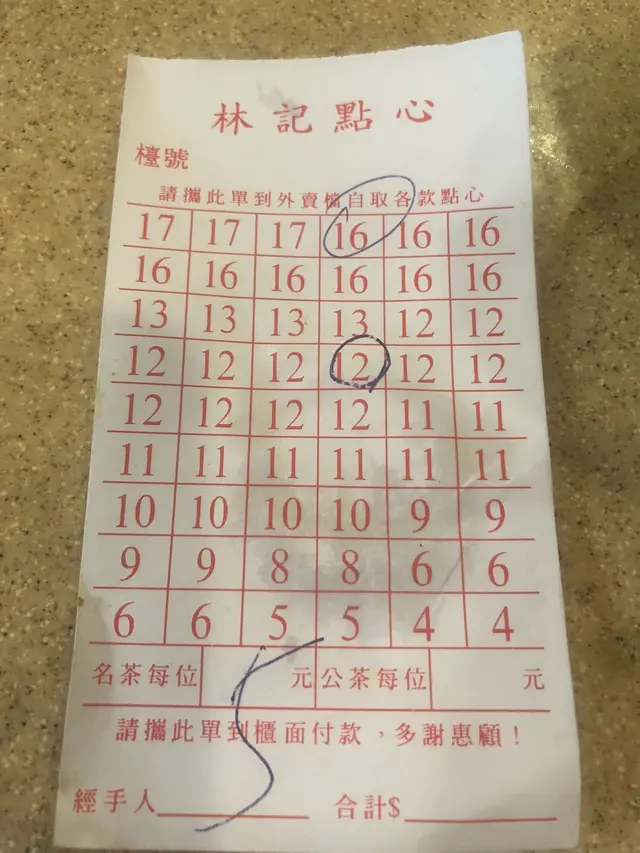 林記點心
檯號
請攜此單到外賣檔自取各款點心
17 17 17 16 16 16
16 16 16 16 16 16
13 13 13 13 12 12
12 12 12 12 12 12
12 12 12 12 11 11
11 11 11 11 11 11
10 10 10 10 9 9
9 9 8 8 6 6
6 6 5 5 4 4
名茶每位 元 公茶每位 元
請攜此單到櫃面付款，多謝惠顧！
經手人 合計$